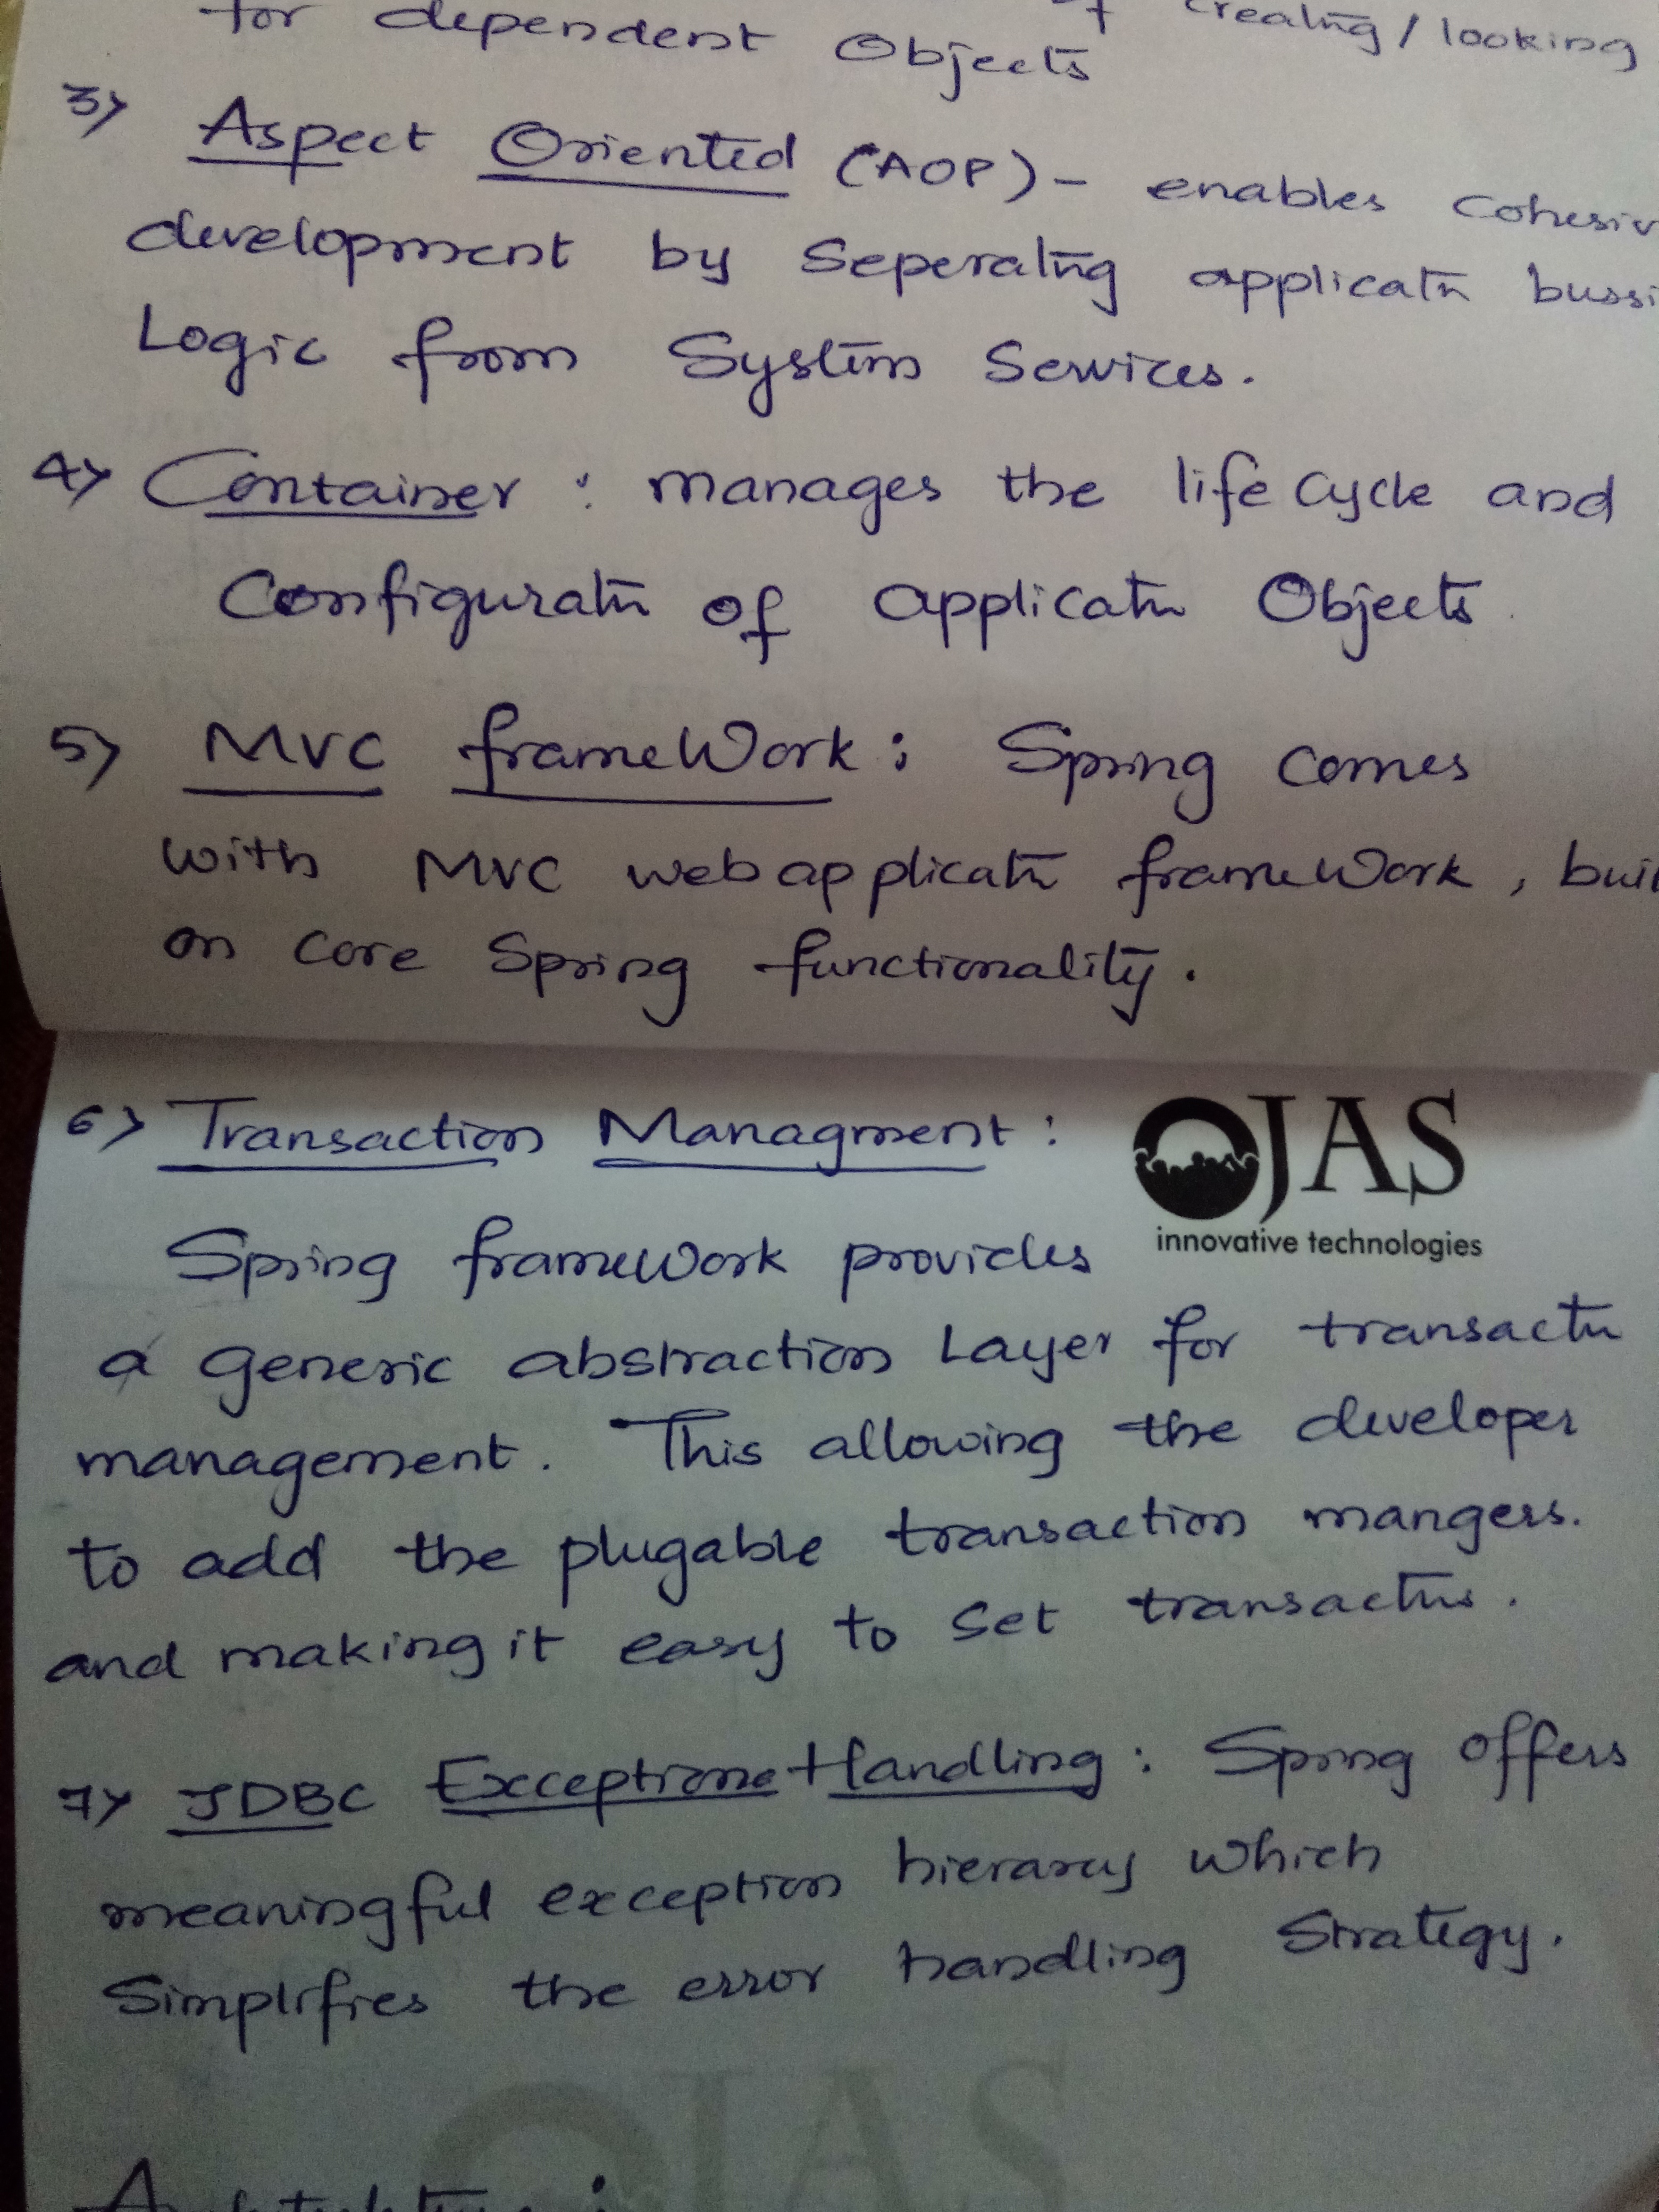 for dependent Objects creating / looking
3) Aspect Oriented (AOP) - enables cohesiv
development by Seperating applicatn bussi
Logic from System Services.
4) Container : manages the life cycle and
Configuratn of applicatn Objects
5) MVC frameWork : Spring comes
with MVC web applicatn frameWork, buil
on core Spring functionality.
6) Transaction Managment :
OJAS
innovative technologies
Spring frameWork provides
a generic abstraction Layer for transactn
management. This allowing the developer
to add the plugable transaction mangers.
and making it easy to set transactns.
7) JDBC Exceptione Handling : Spring offers
meaningful exception hierarcy which
Simplifies the error handling Strategy.
OJAS